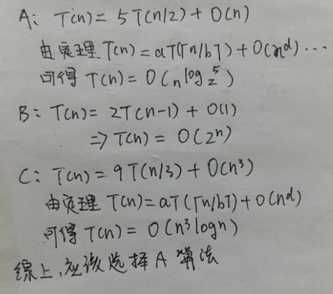 A: T(n) = 5T(n/2) + O(n)
由定理 T(n) = aT(⌈n/b⌉) + O(n^d) ...
可得 T(n) = O(n^{log_2 5})
B: T(n) = 2T(n-1) + O(1)
⇒ T(n) = O(2^n)
C: T(n) = 9T(n/3) + O(n^3)
由定理 T(n) = aT(⌈n/b⌉) + O(n^d)
可得 T(n) = O(n^3 log n)
综上,应该选择 A 算法